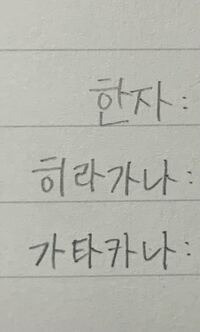 한자:
히라가나:
가타카나: